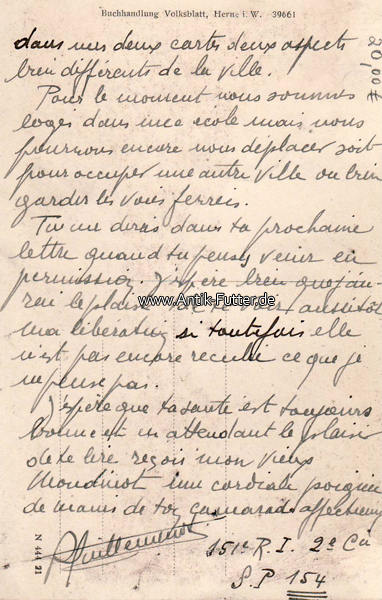 Buchhandlung Volksblatt, Herne i. W. 39661
dans mes deux cartes deux aspects
bien différents de la ville.
Pour le moment nous sommes
logés dans une école mais nous
pouvons encore nous déplacer soit
pour occuper une autre ville ou bien
garder les voies ferrées.
Tu me diras dans ta prochaine
lettre quand tu penses venir en
permission. J'espère bien que j'au-
rai le plaisir de te voir aussitôt
ma libération si toutefois elle
n'est pas encore reculée ce que je
ne pense pas.
J'espère que ta santé est toujours
bonne et en attendant le plaisir
de te lire reçois mon vieux
une cordiale poignée
de mains de ton camarade affectionné
151e R.I. 2e Cie
S.P 154
20,00€
N 444 21
www.Antik-Futter.de